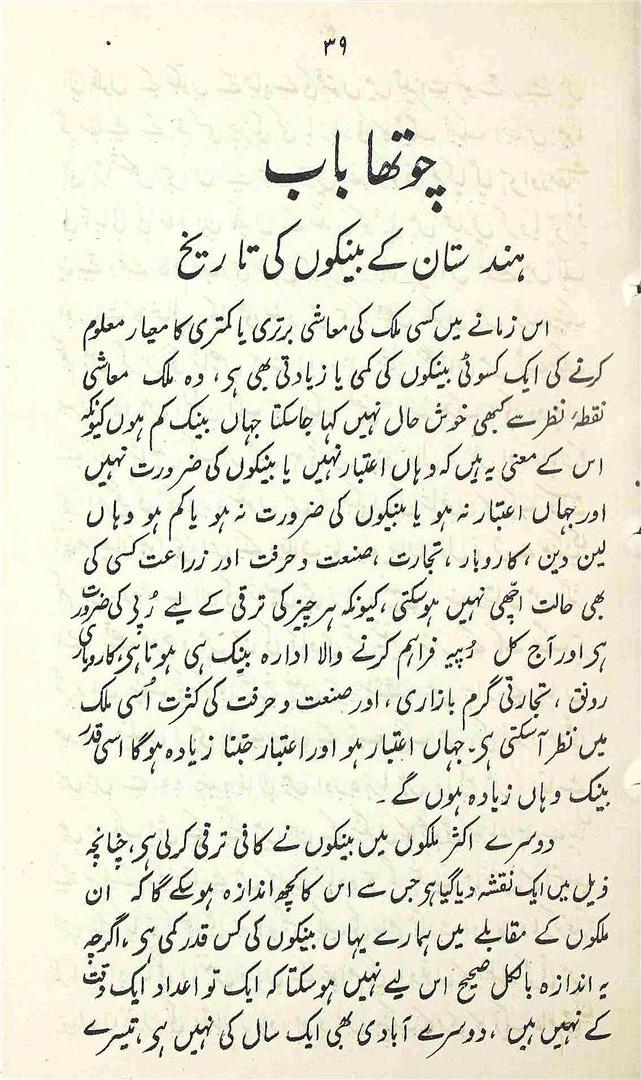 ۳۹
چوتھا باب
ہندستان کے بینکوں کی تاریخ
اس زمانے میں کسی ملک کی معاشی برتری یا کمتری کا معیار معلوم
کرنے کی ایک کسوٹی بینکوں کی کمی یا زیادتی بھی ہی، وہ ملک معاشی
نقطۂ نظر سے کبھی خوش حال نہیں کہا جاسکتا جہاں بینک کم ہوں کیونکہ
اس کے معنی یہ ہیں کہ وہاں اعتبار نہیں یا بینکوں کی ضرورت نہیں
اور جہاں اعتبار نہ ہو یا بینکوں کی ضرورت نہ ہو یا کم ہو وہاں
لین دین، کاروبار، تجارت، صنعت و حرفت اور زراعت کسی کی
بھی حالت اچھی نہیں ہوسکتی، کیونکہ ہر چیز کی ترقی کے لیے رُپی کی ضرورت
ہی اور آج کل رُپیہ فراہم کرنے والا ادارہ بینک ہی ہوتا ہی، کاروباری
رونق، تجارتی گرم بازاری، اور صنعت و حرفت کی کثرت اُسی ملک
میں نظر آسکتی ہی۔ جہاں اعتبار ہو اور اعتبار جتنا زیادہ ہوگا اسی قدر
بینک وہاں زیادہ ہوں گے۔
دوسرے اکثر ملکوں میں بینکوں نے کافی ترقی کرلی ہی، چنانچہ
ذیل میں ایک نقشہ دیا گیا ہی جس سے اس کا کچھ اندازہ ہوسکے گا کہ ان
ملکوں کے مقابلے میں ہمارے یہاں بینکوں کی کس قدر کمی ہی، اگرچہ
یہ اندازہ بالکل صحیح اس لیے نہیں ہوسکتا کہ ایک تو اعداد ایک وقت
کے نہیں ہیں، دوسرے آبادی بھی ایک سال کی نہیں ہی، تیسرے